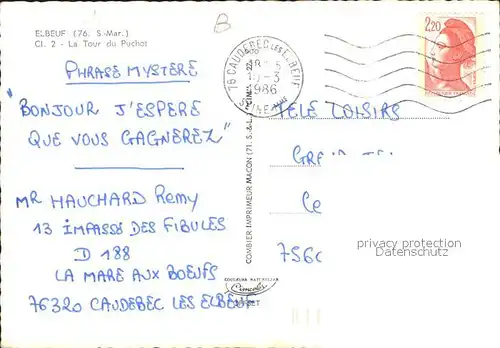 B
ELBEUF (76. S-Mar.)
Cl. 2 - La Tour du Puchot
PHRASE MYSTÈRE
"BONJOUR J'ESPERE
QUE VOUS GAGNEREZ"
MR HAUCHARD Remy
13 IMPASSE DES FIBULES
D 188
LA MARE AUX BOEUFS
76320 CAUDEBEC LES ELBEUF
COMBIER IMPRIMEUR MACON (71. S.-&-L.)
COULEURS NATURELLES
Cimcolor
76 CAUDEBEC LES ELBEUF
1986
SEINE MARITIME
2,20
TELE LOISIRS
756
privacy protection
Datenschutz